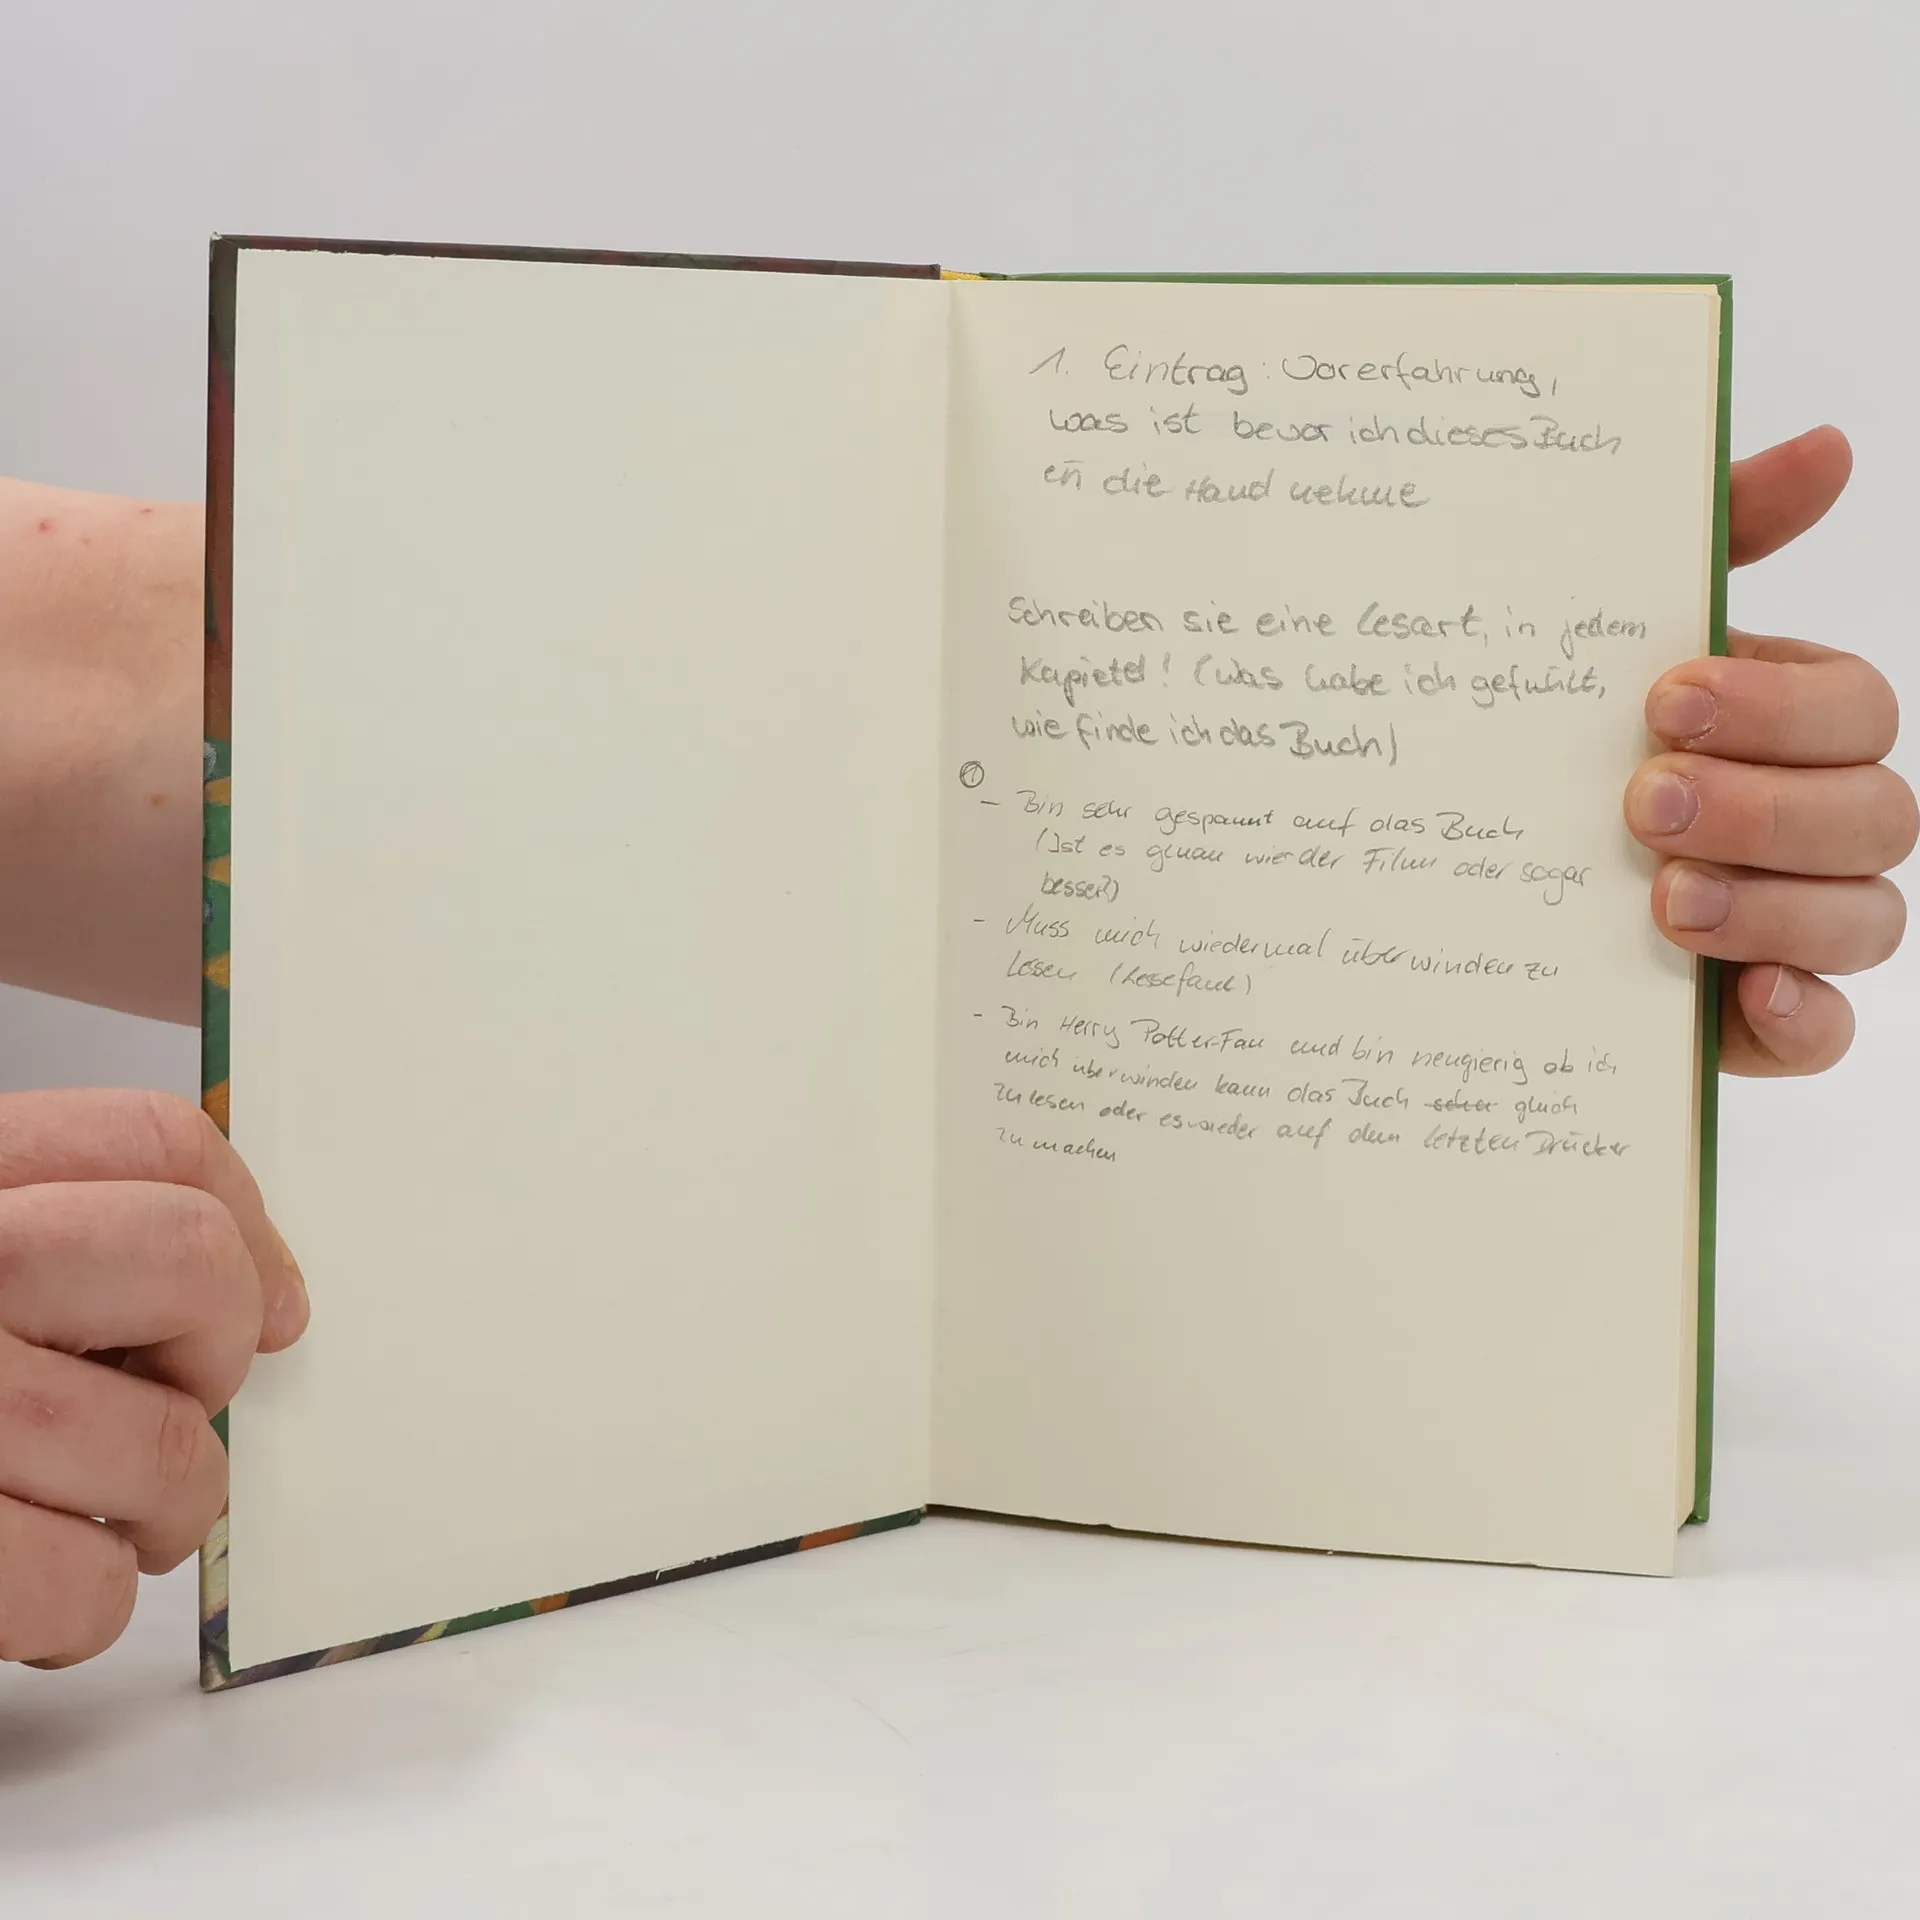 1. Eintrag: Vorerfahrung,
was ist bevor ich dieses Buch
in die Hand nehme
Schreiben sie eine Lesart, in jedem
Kapietel! (Was habe ich gefühlt,
wie finde ich das Buch)
①
- Bin sehr gespannt auf das Buch
(Ist es genau wie der Film oder sogar
besser?)
- Muss mich wiedermal überwinden zu
lesen (Lesefaul)
- Bin Herry Potter-Fan und bin neugierig ob ich
mich überwinden kann das Buch gleich
zu lesen oder es wieder auf dem letzten Drücker
zu machen